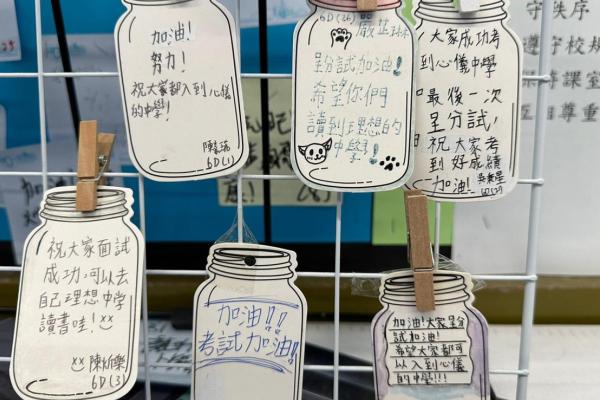 加油!
努力!
祝大家都入到心儀
的中學!
6D(1)
6D(26)
呈分試加油!
希望你們
讀到理想的
中學!!
大家成功考
到心儀中學
最後一次
呈分試,
祝大家考
到好成績
加油!
祝大家面試
成功,可以去
自己理想中學
讀書哇!
6D(3)
加油!!
考試加油!!
加油!大家呈分
試加油!
希望大家都可
以入到心儀
的中學!!!
守秩序
遵守校規
時課室
互相尊重